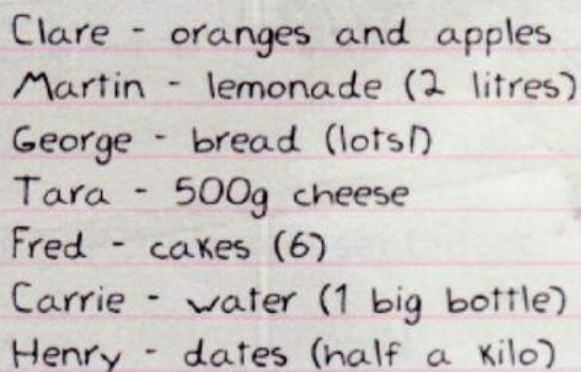 Clare - oranges and apples
Martin - lemonade (2 litres)
George - bread (lots!)
Tara - 500g cheese
Fred - cakes (6)
Carrie - water (1 big bottle)
Henry - dates (half a kilo)